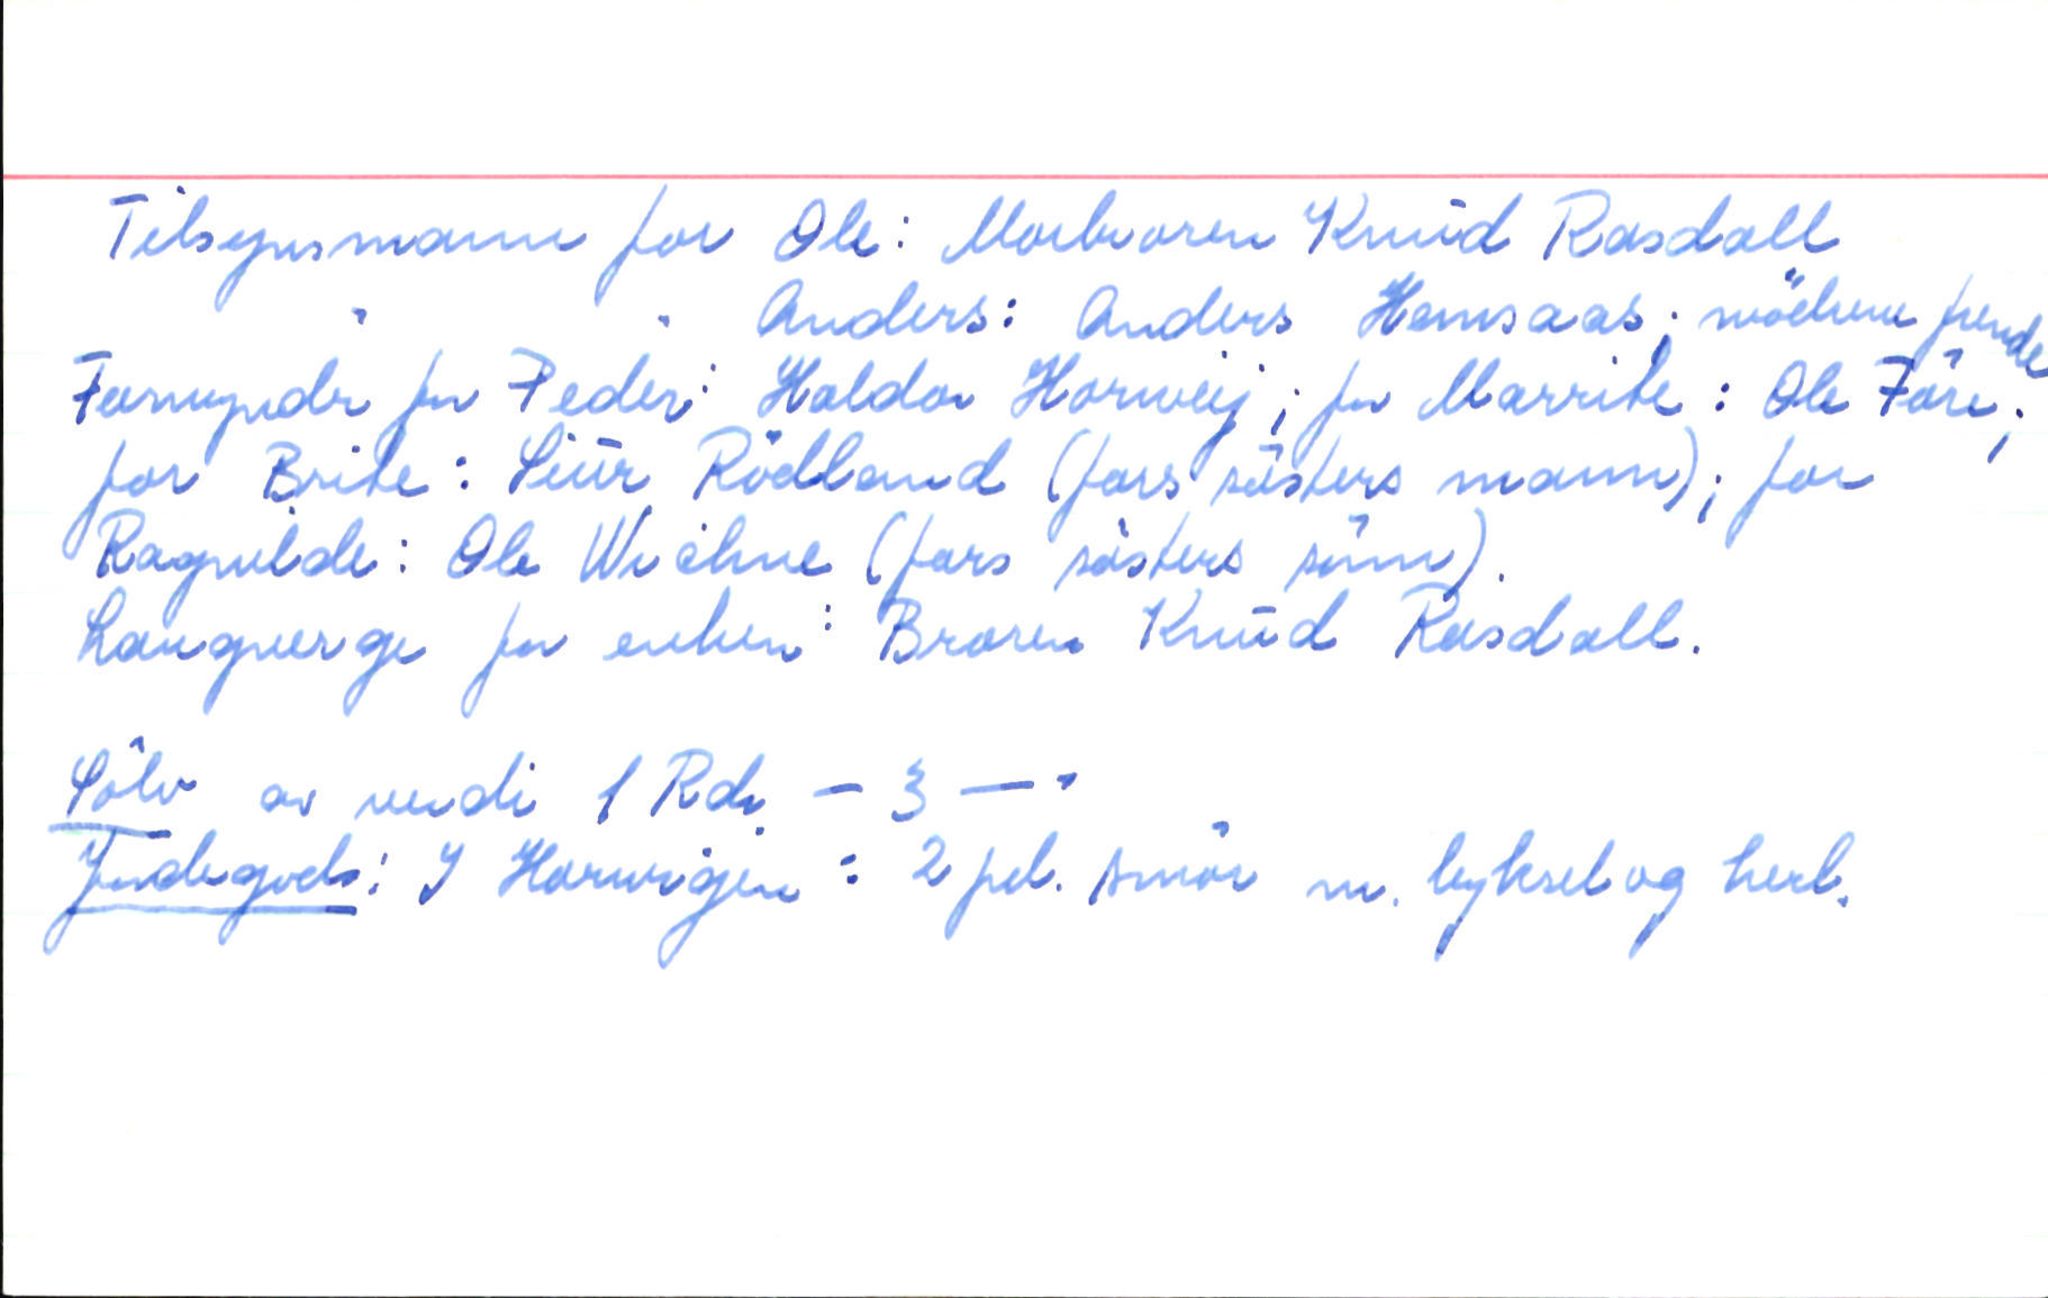 Tilsynsmann for Ole: Morbroren Knud Rasdall
" " Anders: Anders Hemsaas; mödrene frende
Formynder for Peder: Haldor Horwej; for Marrite: Ole Före;
for Brite: Siur Rödland (fars sösters mann); for
Ragnilde: Ole Wichne (fars sösters sönn).
Laugverge for enken: Broren Knud Rasdall.
Sölv av verdi 1 Rdr. - 3 - "
Jordegods: I Horwigen: 2 pd. smör m. byksel og herl.